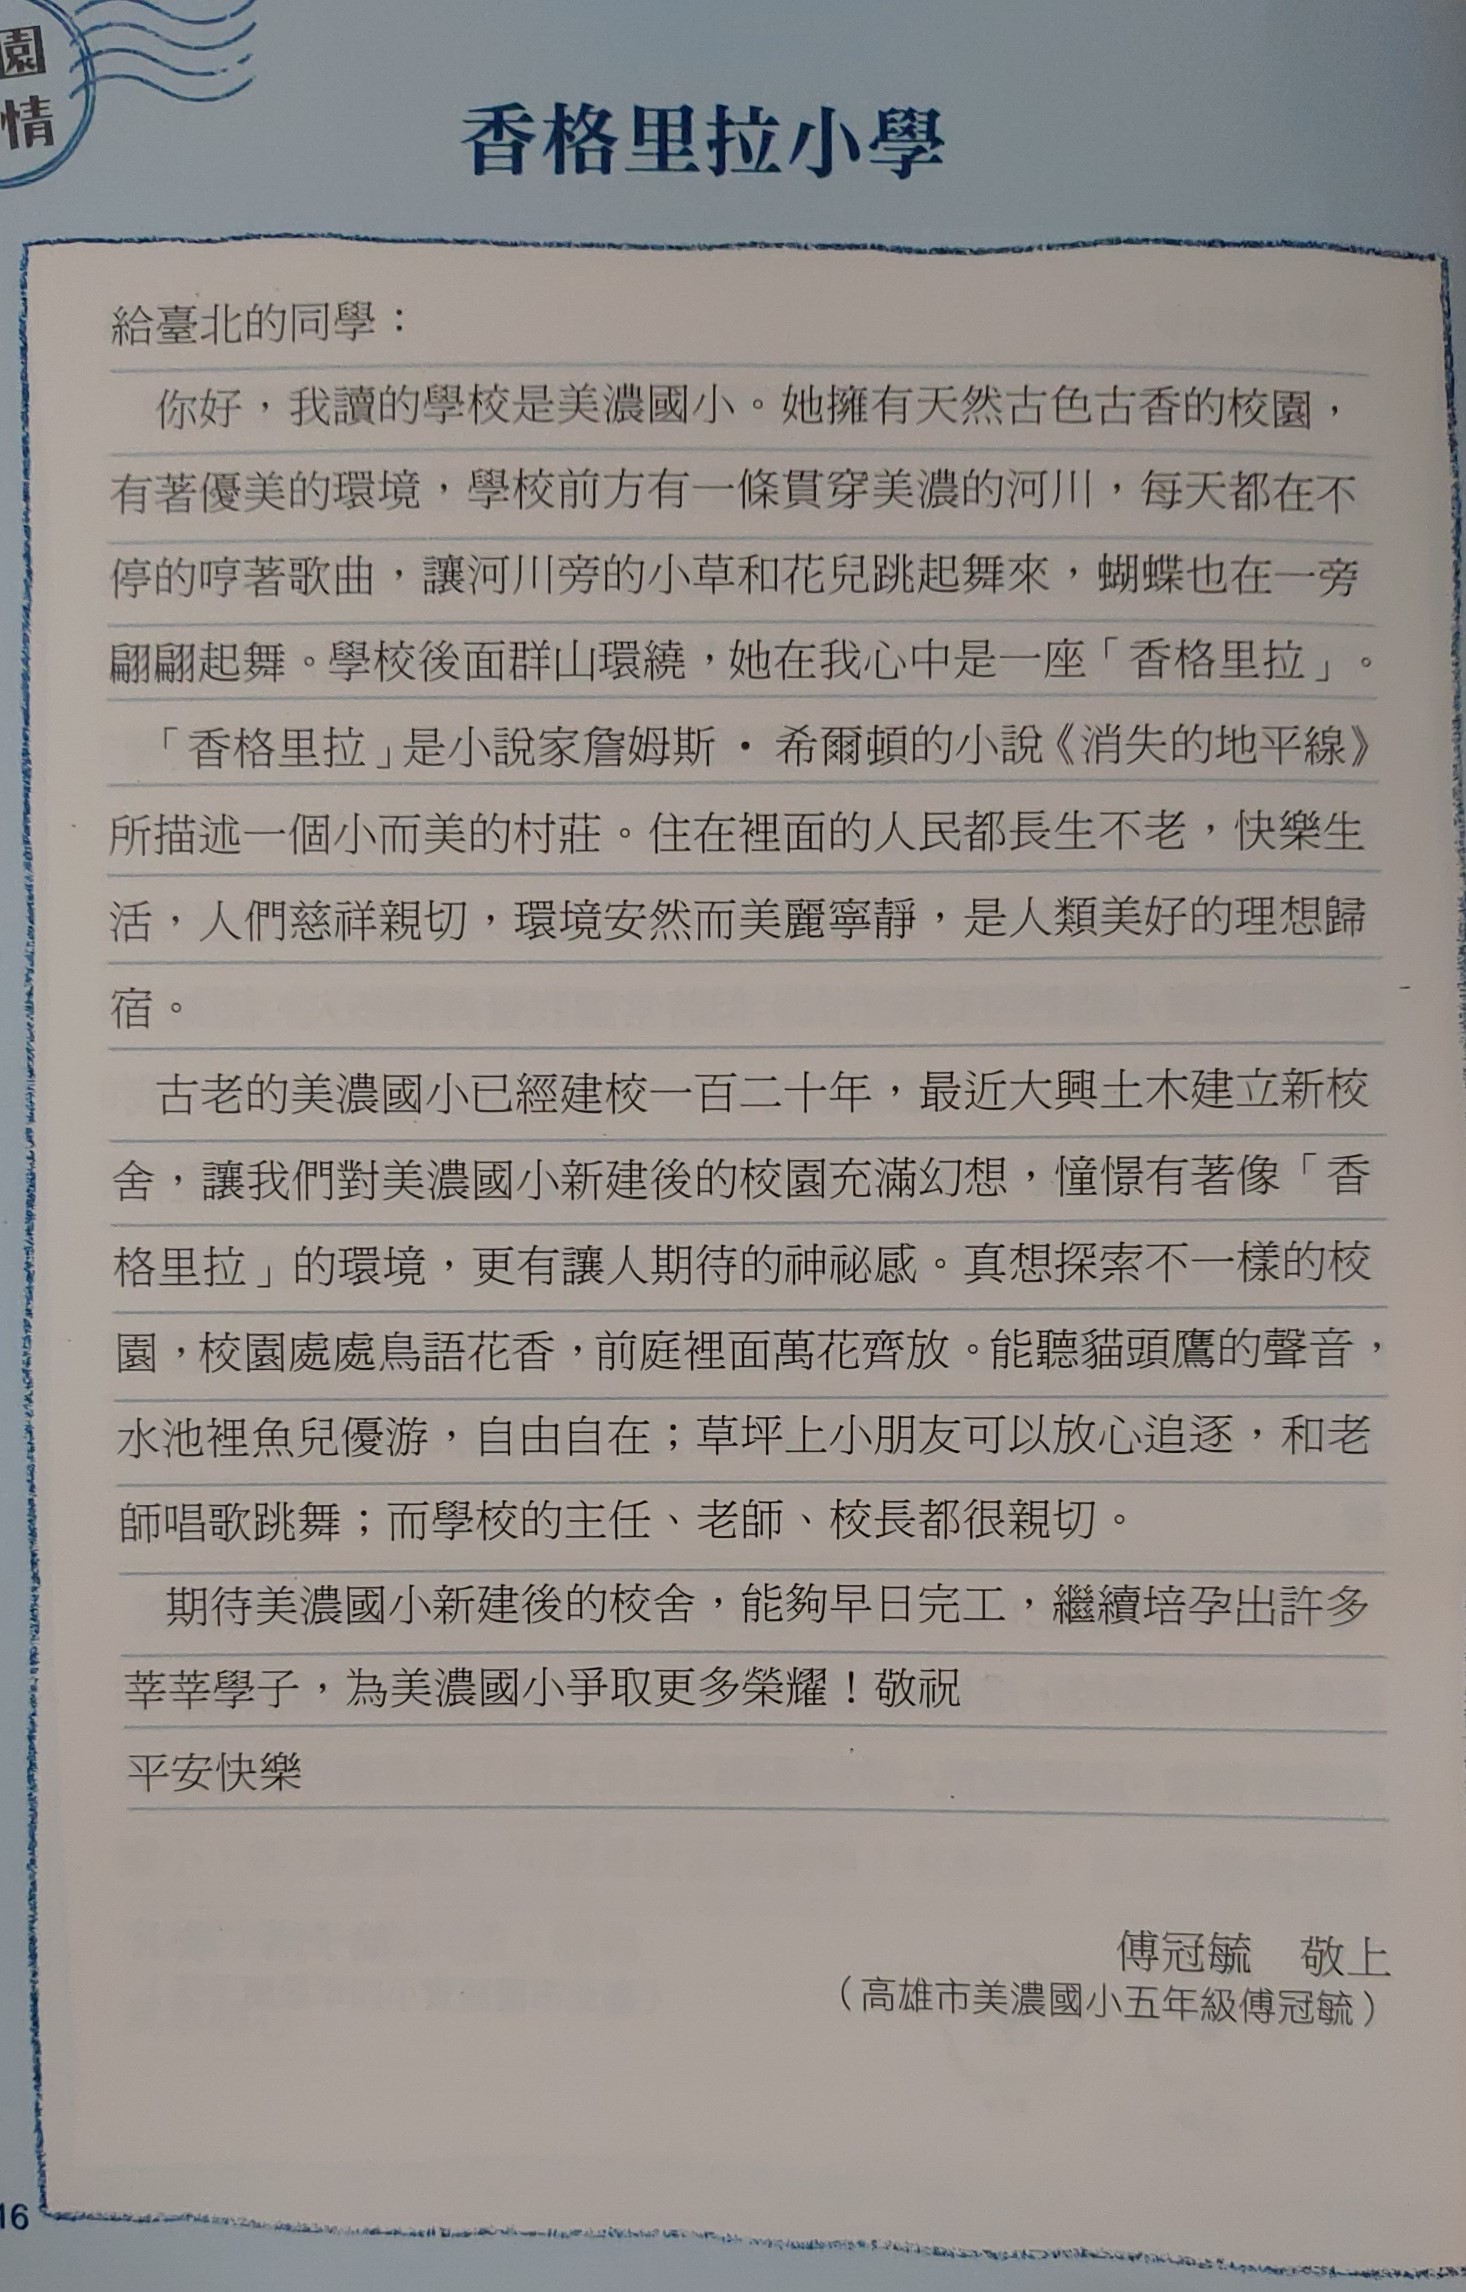 園
情
香格里拉小學
給臺北的同學：
你好，我讀的學校是美濃國小。她擁有天然古色古香的校園，
有著優美的環境，學校前方有一條貫穿美濃的河川，每天都在不
停的哼著歌曲，讓河川旁的小草和花兒跳起舞來，蝴蝶也在一旁
翩翩起舞。學校後面群山環繞，她在我心中是一座「香格里拉」。
「香格里拉」是小說家詹姆斯・希爾頓的小說《消失的地平線》
所描述一個小而美的村莊。住在裡面的人民都長生不老，快樂生
活，人們慈祥親切，環境安然而美麗寧靜，是人類美好的理想歸
宿。
古老的美濃國小已經建校一百二十年，最近大興土木建立新校
舍，讓我們對美濃國小新建後的校園充滿幻想，憧憬有著像「香
格里拉」的環境，更有讓人期待的神祕感。真想探索不一樣的校
園，校園處處鳥語花香，前庭裡面萬花齊放。能聽貓頭鷹的聲音，
水池裡魚兒優游，自由自在；草坪上小朋友可以放心追逐，和老
師唱歌跳舞；而學校的主任、老師、校長都很親切。
期待美濃國小新建後的校舍，能夠早日完工，繼續培孕出許多
莘莘學子，為美濃國小爭取更多榮耀！敬祝
平安快樂
傅冠毓　敬上
（高雄市美濃國小五年級傅冠毓）
16